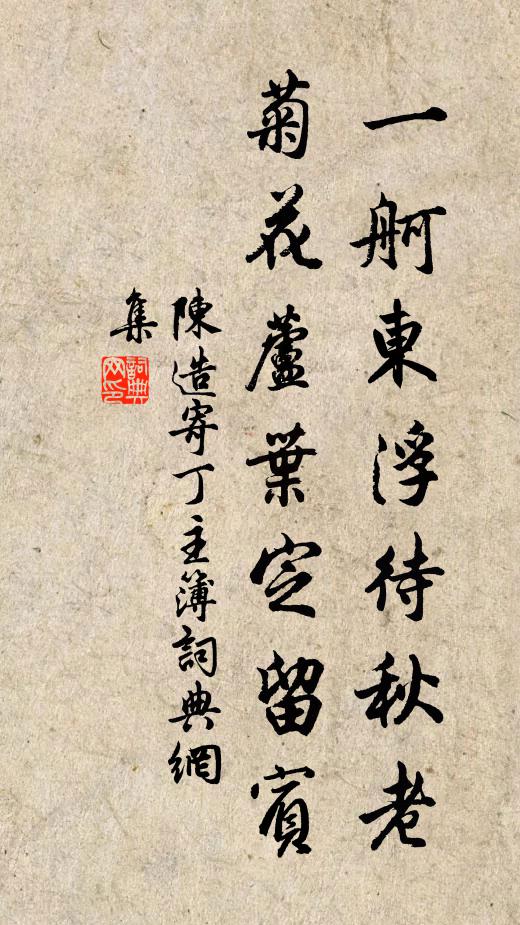 一舸東浮待秋老
菊花蘆葉定留賓
陳造寄丁主簿詞典網
集
詞典网印